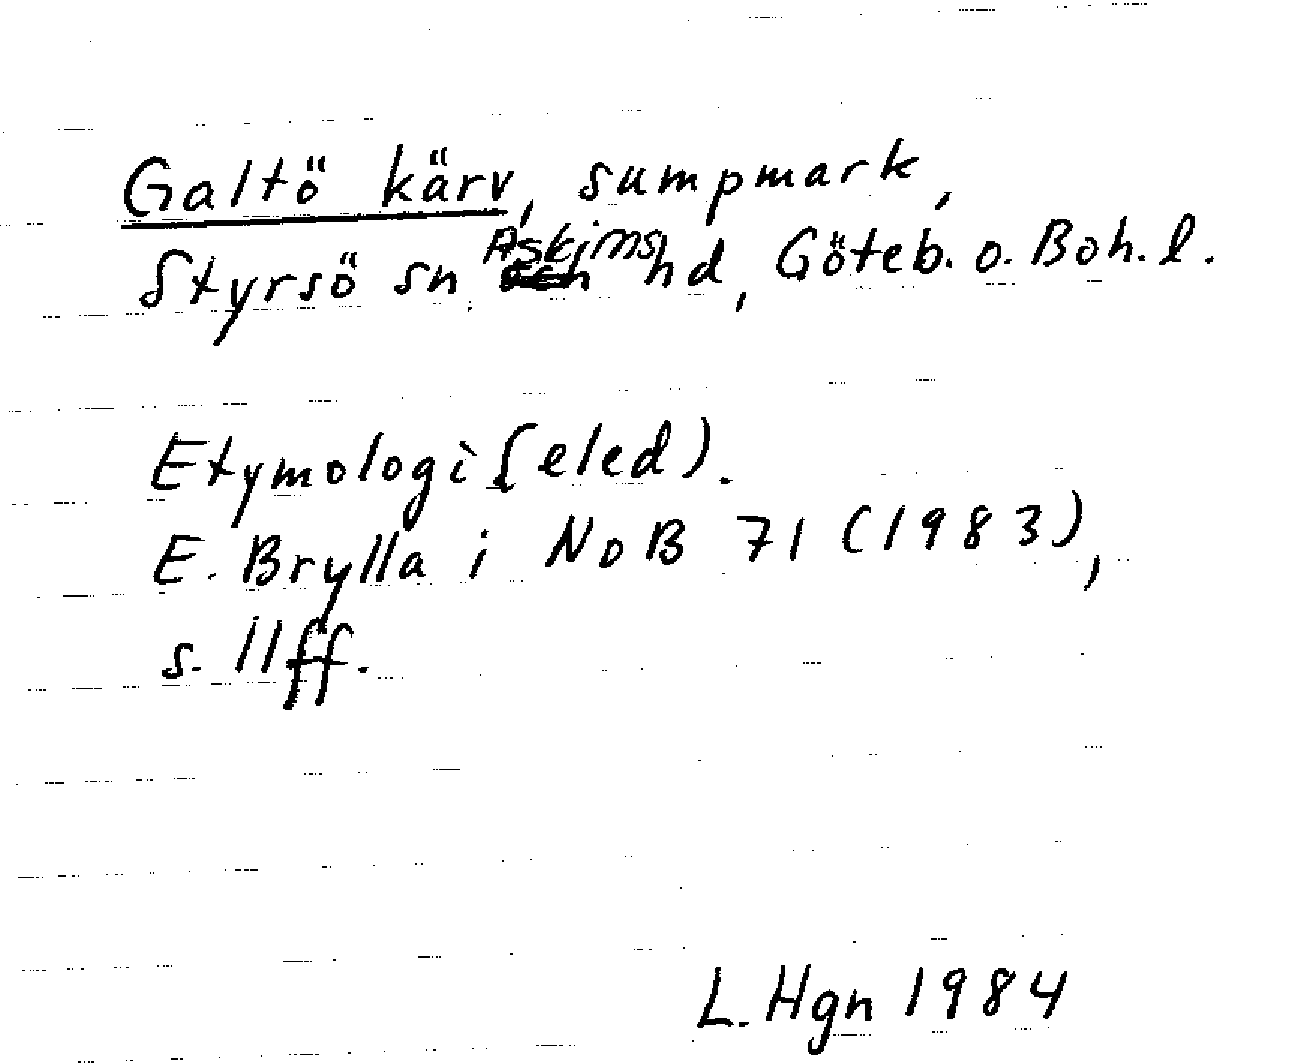 Galtö kärv, sumpmark,
Styrsö sn Askims hd, Göteb. o. Boh. l.
Etymologi (eled).
E. Brylla i NoB 71 (1983),
s. 11ff.
L. Hgn 1984